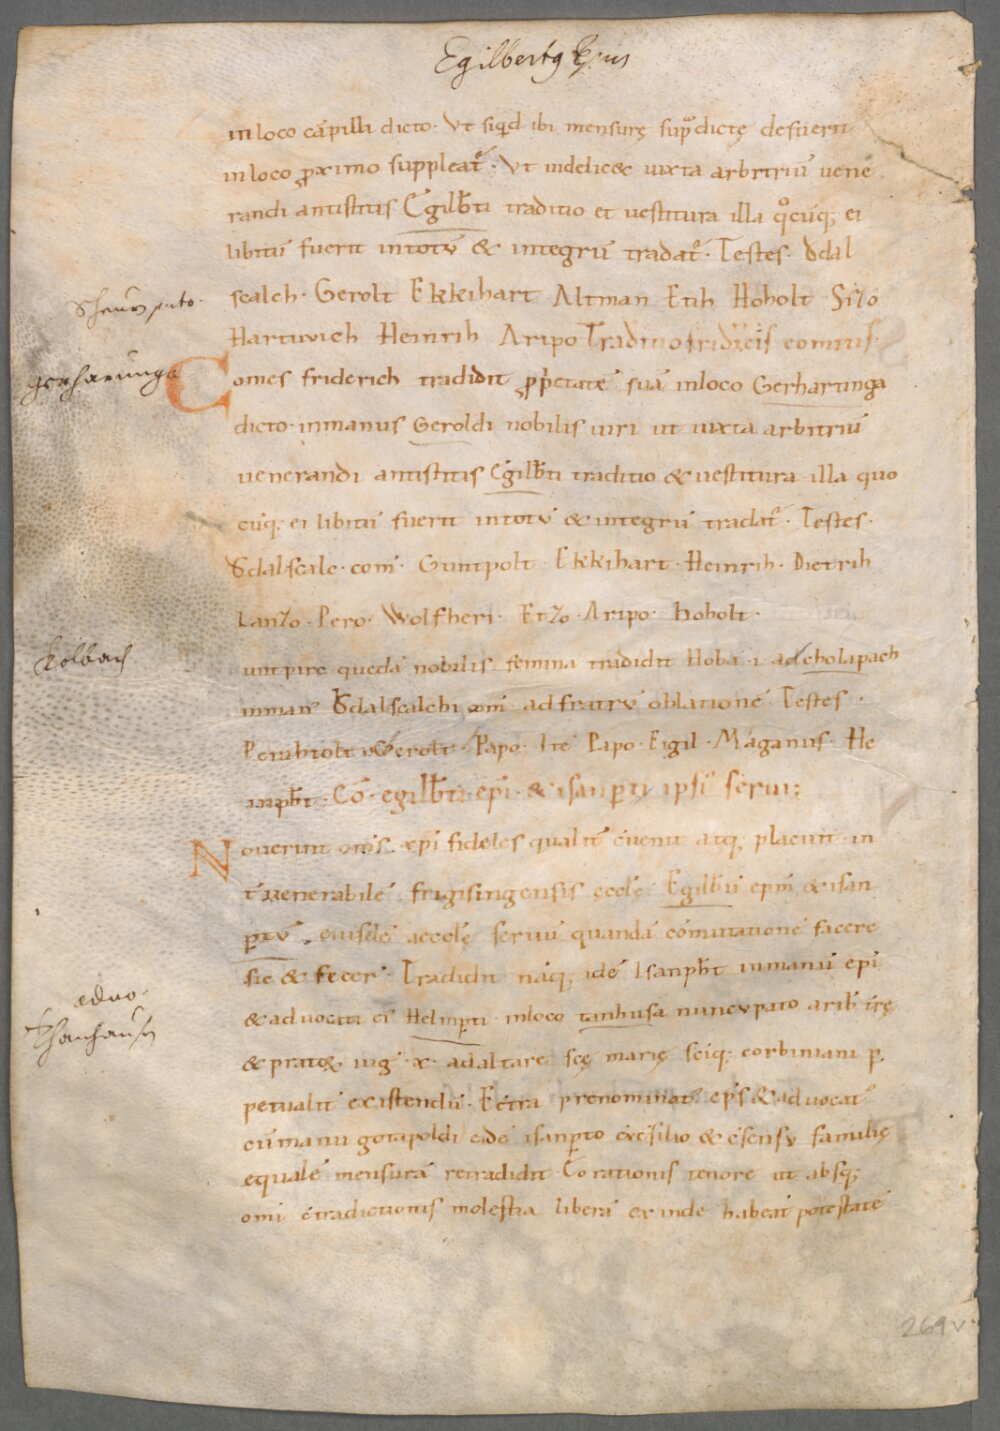 Egilbertꝰ Ep̄us
in loco cāpilli dicto. Ut siqͥd ibi mensurę supͣdictę defuerit
in loco ꝓximo suppleat᷑. Ut uidelicet iuxta arbitriū uene
randi antistitis Egilb̄ti traditio et uestitura illa qͦcūq; ei
libitū fuerit in totū & integrū tradat᷑. Testes. Odal
scalch. Gerolt Ekkihart Altman Etih Hoholt Sizo
Schaur
Hartuuich Heinrih Aripo Traditio fridrici comitis.
gerharunga
Comes friderich tradidit ꝓpͥetatē suā in loco Gerhartinga
dicto. in manus Geroldi nobilis uiri ut iuxta arbitriū
uenerandi antistitis Egilb̄ti traditio & uestitura illa quo
cūq; ei libitū fuerit in totū & integrū tradat᷑. Testes.
Odalscalc. com̄. Guntpolt. Ekkihart. Heinrih. Dietrih
Lanzo. Pero. Wolfheri. Etzo. Aripo. hoholt.
kolbach
untpirc quedā nobilis femina tradidit Hobā .i. ad cholapach
in manꝰ Odalscalchi com̄ ad fratrū oblationē Testes.
Perahtolt Gerolt. Papo. Itē Papo. Eigil. Māganus. He
inpb̄t. Cō. egilb̄ti ep̄i. & isanꝑti ipsiꝰ serui:
Nouerint om̄s xp̄i fideles qualit̄ ēuenit atq; placuit in
t̄ uenerabilē frigisingensis ęcclę Egilb̄tū ep̄m & isan
ꝑtū eiusdē aecclę seruū quandā cōmutationē facere
sic & fecer̄. Tradidit nāq; idē Isanpb̄t in manū ep̄i
aduo.
& aduocati ei᷑ Helmꝑti. in loco tanhusa nuncupato arib̄ t̄rę
Thanhausn
& pratoꝝ iuḡ .x. ad altare scę marię sciq; corbiniani ꝑ
petualit̄ existendū. Ec̄tra prenominatꝰ ep̄s & aduocatꝰ
cū manu gotapoldi eidē isanꝑto c̄ c̄silio & c̄sensu familię
equalē mensurā retradidit. Eo rationis tenore ut absq;
omi c̄tradictionis molestia liberā ex inde habeat potestatē
269v